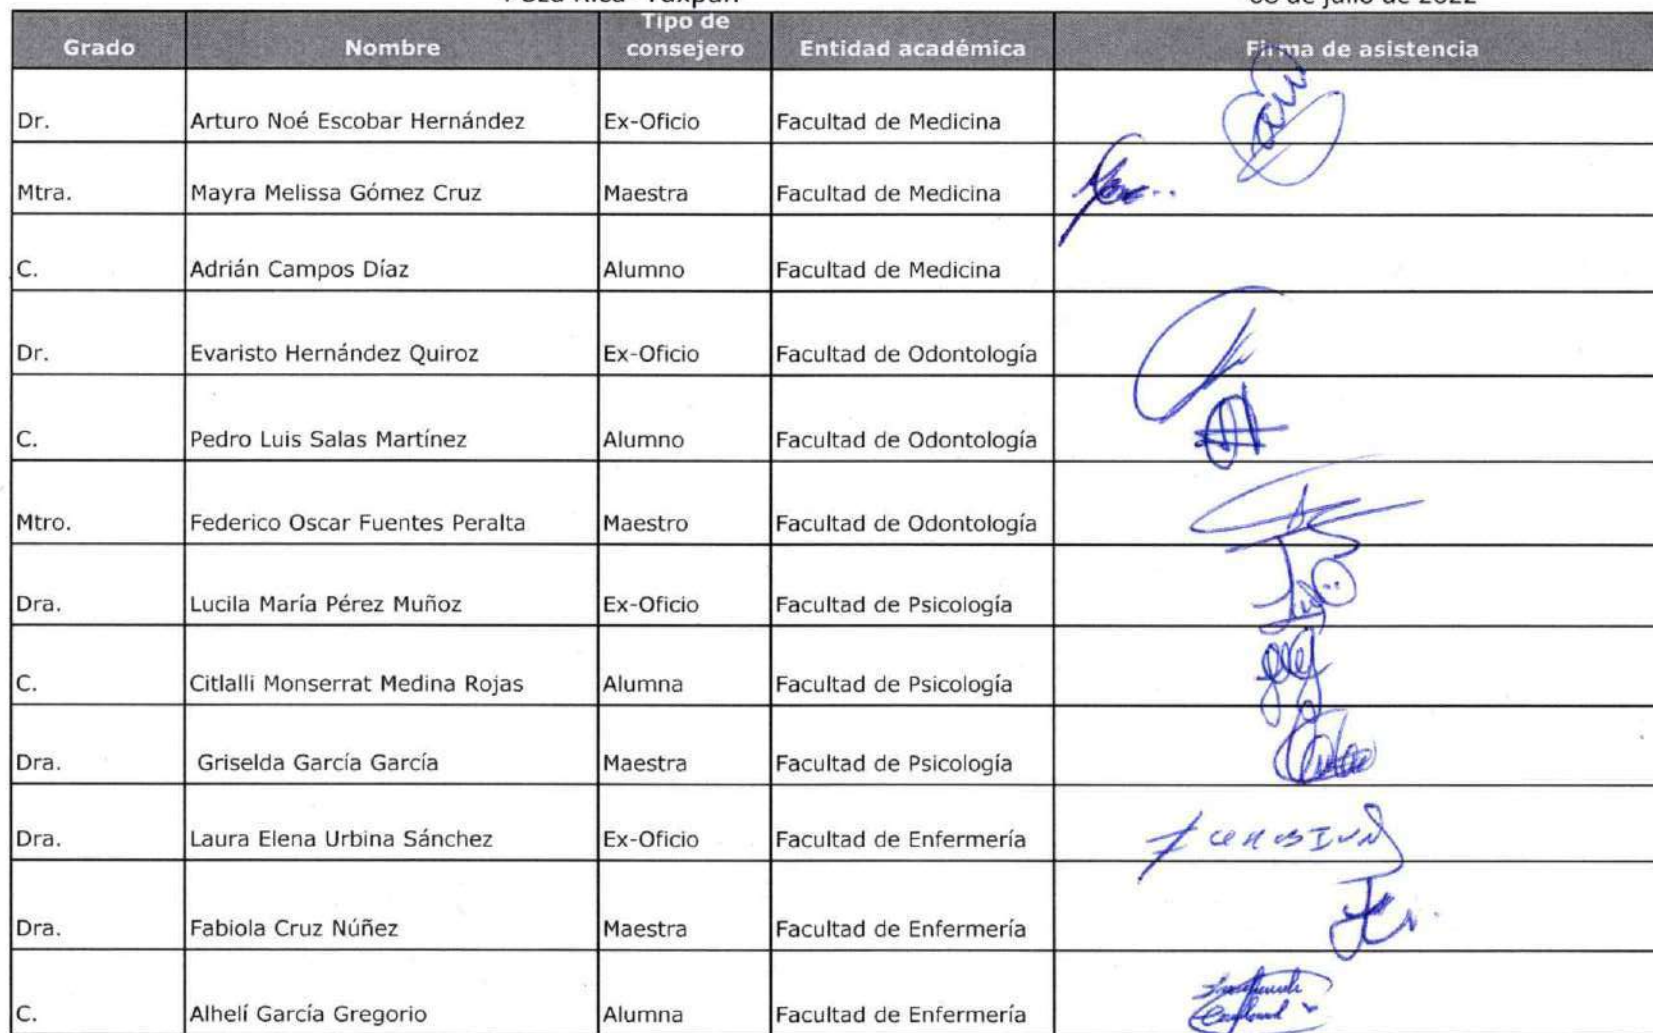 Grado Nombre Tipo de consejero Entidad académica Firma de asistencia
Dr. Arturo Noé Escobar Hernández Ex-Oficio Facultad de Medicina
Mtra. Mayra Melissa Gómez Cruz Maestra Facultad de Medicina
C. Adrián Campos Díaz Alumno Facultad de Medicina
Dr. Evaristo Hernández Quiroz Ex-Oficio Facultad de Odontología
C. Pedro Luis Salas Martínez Alumno Facultad de Odontología
Mtro. Federico Oscar Fuentes Peralta Maestro Facultad de Odontología
Dra. Lucila María Pérez Muñoz Ex-Oficio Facultad de Psicología
C. Citlalli Monserrat Medina Rojas Alumna Facultad de Psicología
Dra. Griselda García García Maestra Facultad de Psicología
Dra. Laura Elena Urbina Sánchez Ex-Oficio Facultad de Enfermería
Dra. Fabiola Cruz Núñez Maestra Facultad de Enfermería
C. Alhelí García Gregorio Alumna Facultad de Enfermería